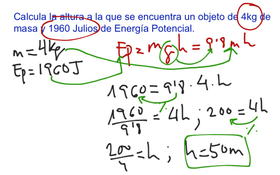 Calcula la altura a la que se encuentra un objeto de 4kg de
masa y 1960 Julios de Energía Potencial.
m = 4kg
Ep = 1960J
Ep = m g h = 9'8 m h
1960 = 9'8 · 4 · h
1960/9'8 = 4h ; 200 = 4h
200/4 = h ; h = 50m